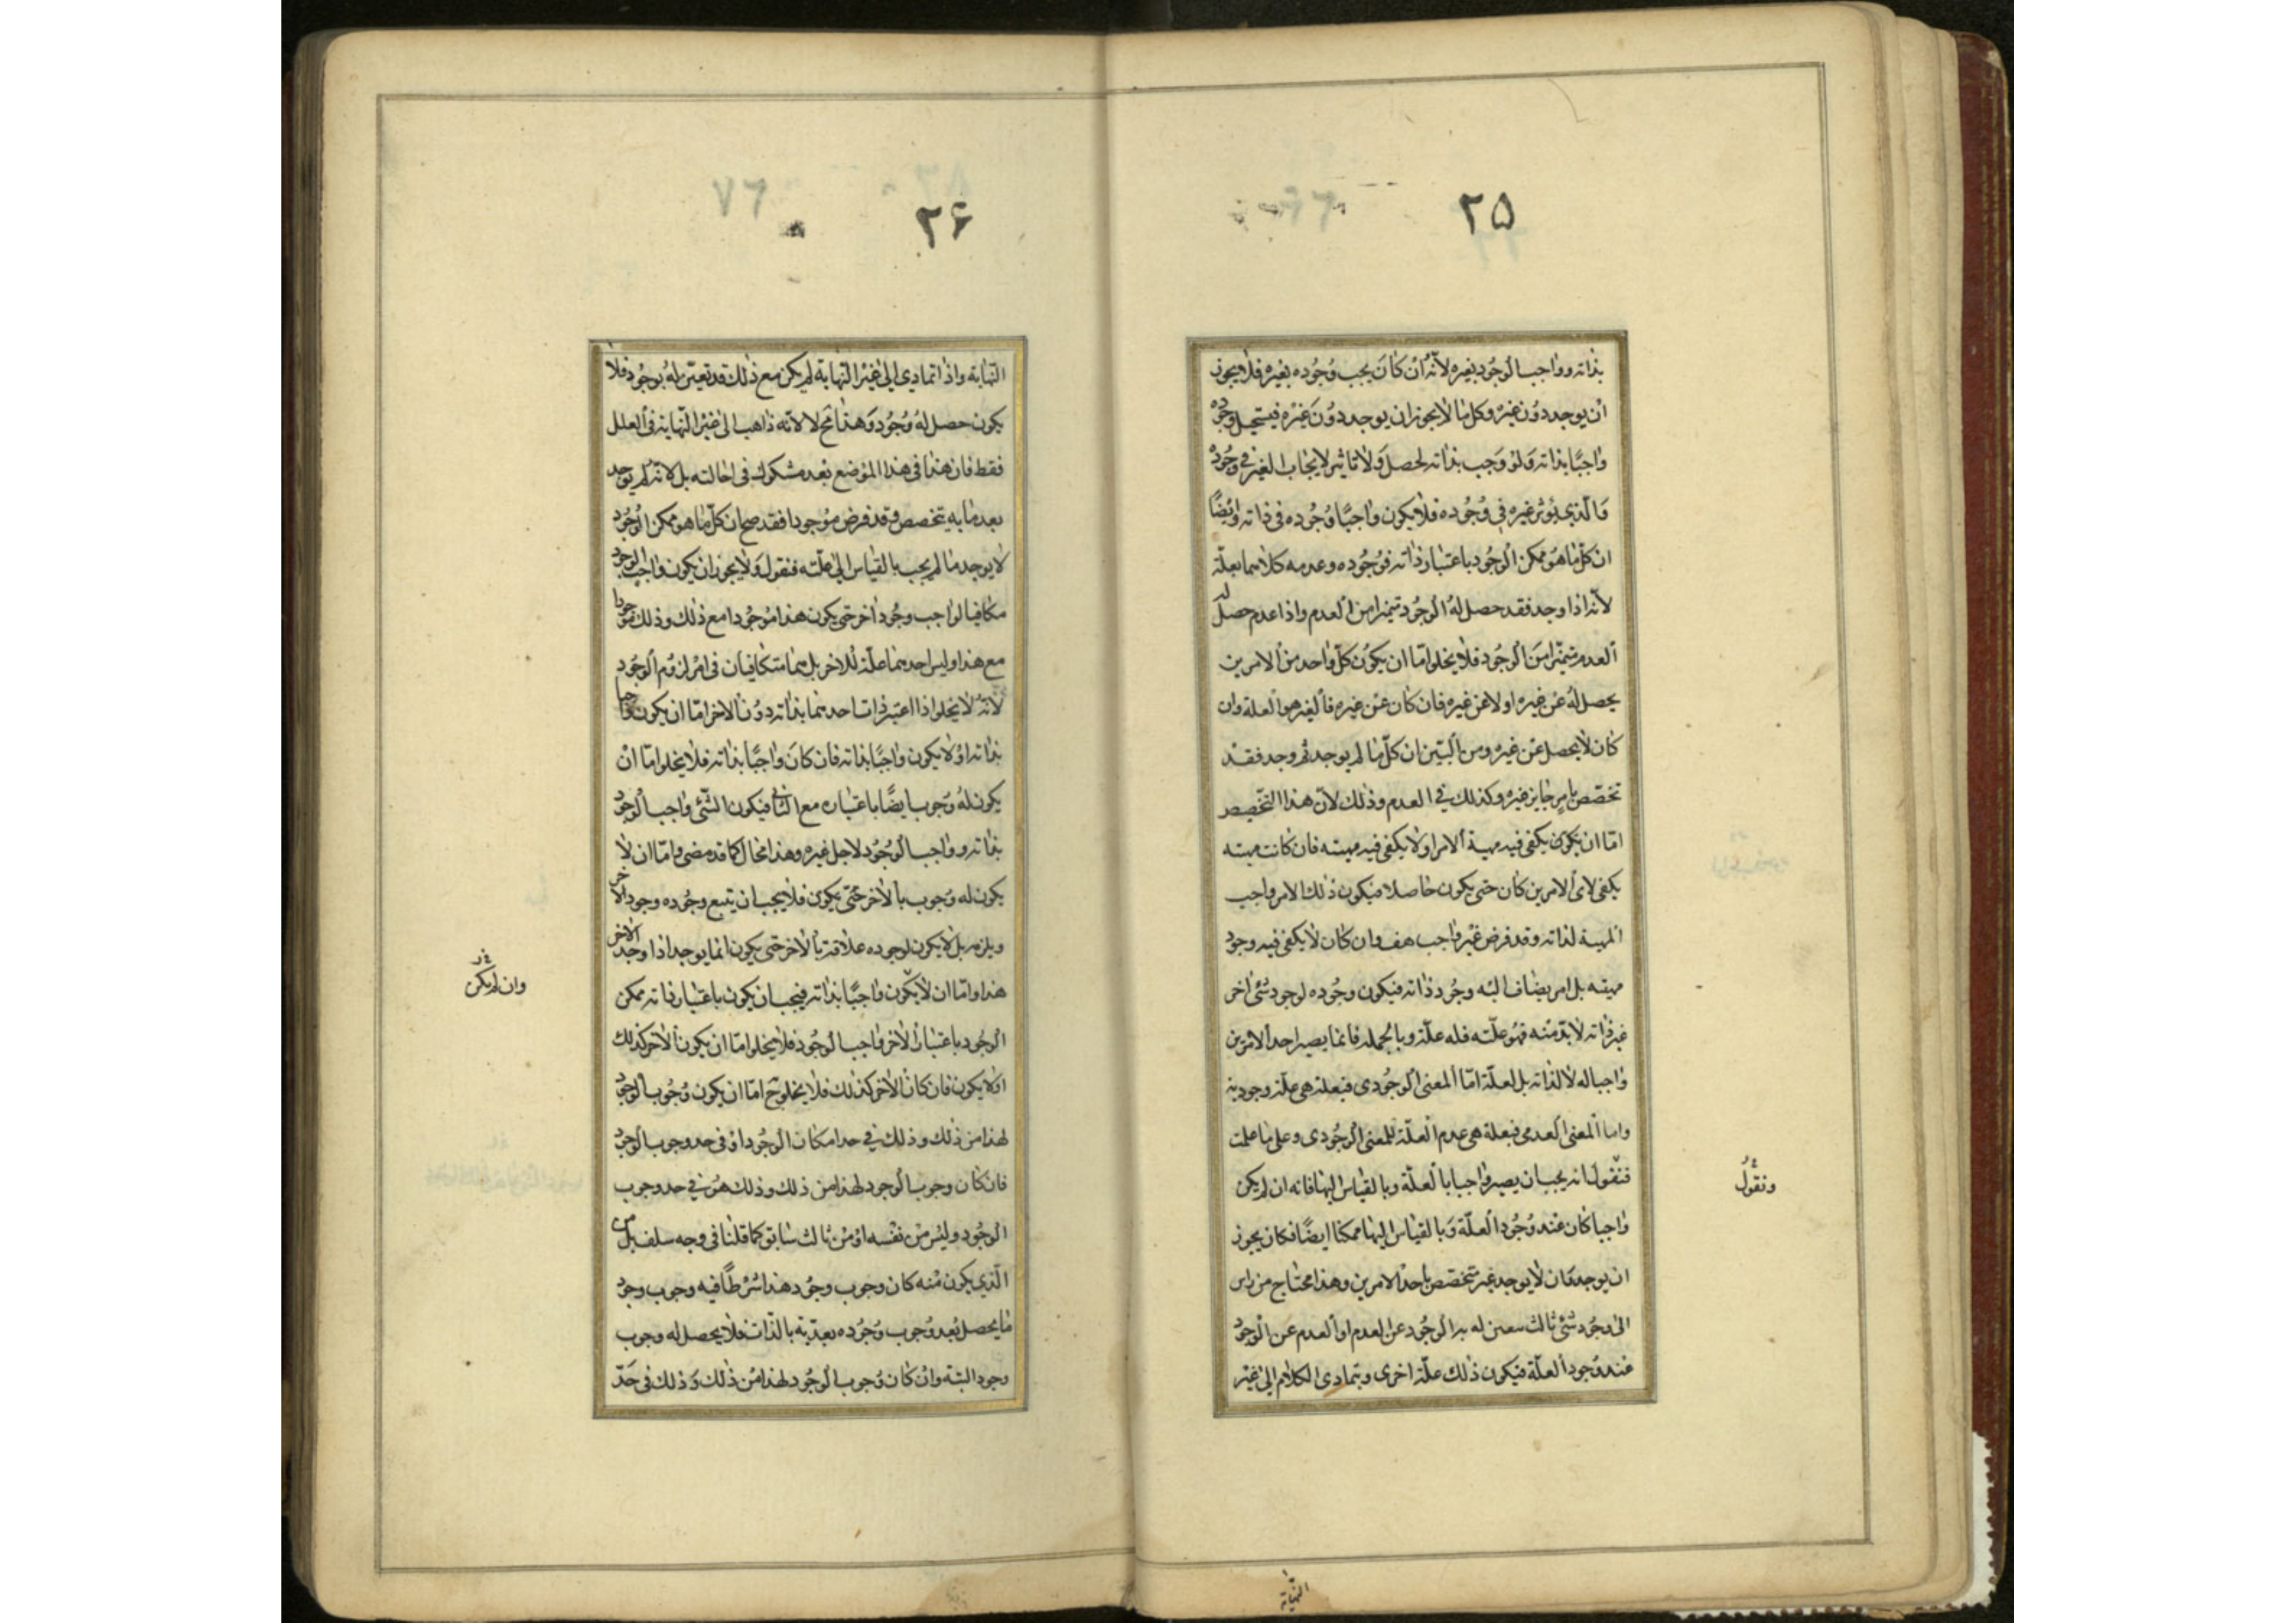 ۲۵
بذاته وواجب الوجود بغيره لأنّه ان كان يجب وجوده بغيره فلا يجوز
ان يوجد دون غيره وكل ما لا يجوز ان يوجد دون غيره فيستحيل وجوده
واجبًا بذاته ولو وجب بذاته لحصل ولا تاثير لايجاب الغير في وجوده
والذي يؤثر غيره في وجوده فلا يكون واجبًا وجوده في ذاته وايضًا
ان كلّ ما هو ممكن الوجود باعتبار ذاته فوجوده وعدمه كلاهما بعلّة
لأنه اذا وجد فقد حصل له الوجود متميزا من العدم واذا عدم حصل له
العدم متميّزا من الوجود فلا يخلوا امّا ان يكون كلّ واحد من الامرين
يحصل له عن غيره او لا عن غيره فان كان عن غيره فالغير هو العلة وان
كان لا يحصل عن غيره ومن البيّن ان كلّ ما لم يوجد ثم وجد فقد
تخصّص بامر جايز غيره وكذلك في العدم وذلك لأن هذا التخصيص
امّا ان يكون يكفى فيه مهية الامر اولا يكفى فيه مهيته فان كانت مهيته
يكفى لاى الامرين كان حتى يكون حاصلا فيكون ذلك الامر واجب
المهية لذاته وقد فرض غير واجب هف وان كان لا يكفى فيه وجود
مهيته بل امر يضاف اليه وجود ذاته فيكون وجوده لوجود شئ اخر
غير ذاته لا بدّ منه فهو علّته فله علّة وبالجملة فانما يصير احد الامرين
واجبا له لا لذاته بل لعلّة امّا المعنى الوجودى فبعلة هى علّة وجودية
واما المعنى العدمى فبعلة هى عدم العلّة للمعنى الوجودى وعلى ما علمت
فنقول انه يجب ان يصير واجبا بالعلّة وبالقياس اليها فانه ان لم يكن
واجبا كان عند وجود العلّة وبالقياس اليها ممكنا ايضًا فكان يجوز
ان يوجد وان لا يوجد غير متخصّص باحد الامرين وهذا محتاج من راس
الى وجود شئ ثالث يتعين له به الوجود عن العدم او العدم عن الوجود
عند وجود العلّة فيكون ذلك علّة اخرى ويتمادى الكلام الى غير
ونقول
النهاية
۲۶
النهاية واذا تمادى الى غير النهاية لم يكن مع ذلك قد تعيّن له وجود فلا
يكون حصل له وجود وهذا مح لا لانه ذاهب الى غير النهاية في العلل
فقط فان هذا في هذا الموضع بعد مشكوك في احالته بل لانه لم يوجد
بعد ما به يتخصص وقد فرض موجودا فقد صح ان كلّ ما هو ممكن الوجود
لا يوجد ما لم يجب بالقياس الى علّته فنقول ولا يجوز ان يكون واجب الوجود
مكافيا لواجب وجود اخر حتى يكون هذا موجودا مع ذلك وذلك موجودا
مع هذا وليس احدهما علّة للاخر بل هما متكافيان في امر لزوم الوجود
لأنّه لا يخلوا اذا اعتبر ذات احدهما بذاته دون الاخر امّا ان يكون واجبا
بذاته او لا يكون واجبًا بذاته فان كان واجبًا بذاته فلا يخلوا امّا ان
يكون له وجوب ايضًا باعتباره مع الثانى فيكون الشئ واجب الوجود
بذاته وواجب الوجود لاجل غيره وهذا محال كما قد مضى وامّا ان لا
يكون له وجوب بالآخر حتّى يكون فلا يجب ان يتبع وجوده وجود الآخر
ويلزمه بل لا يكون لوجوده علاقة بالآخر حتى يكون انما يوجد اذا وجد الآخر
هذا وامّا ان لا يكون واجبًا بذاته فيجب ان يكون باعتبار ذاته ممكن
الوجود باعتبار الآخر واجب الوجود فلا يخلوا امّا ان يكون الآخر كذلك
او لا يكون فان كان الآخر كذلك فلا يخلو ح امّا ان يكون وجوب الوجود
لهذا من ذلك وذلك في حد امكان الوجود او في حد وجوب الوجود
فان كان وجوب الوجود لهذا من ذلك وذلك هو في حد وجوب
الوجود وليس من نفسه او من ثالث سابق كما قلنا في وجه سلف بل من
الّذي يكون منه كان وجوب وجود هذا شرطًا فيه وجوب وجود
ما يحصل بعد وجوب وجوده بعديّة بالذات فلا يحصل له وجوب
وجود البتة وان كان وجوب الوجود لهذا من ذلك وذلك في حدّ
وان لم يكن